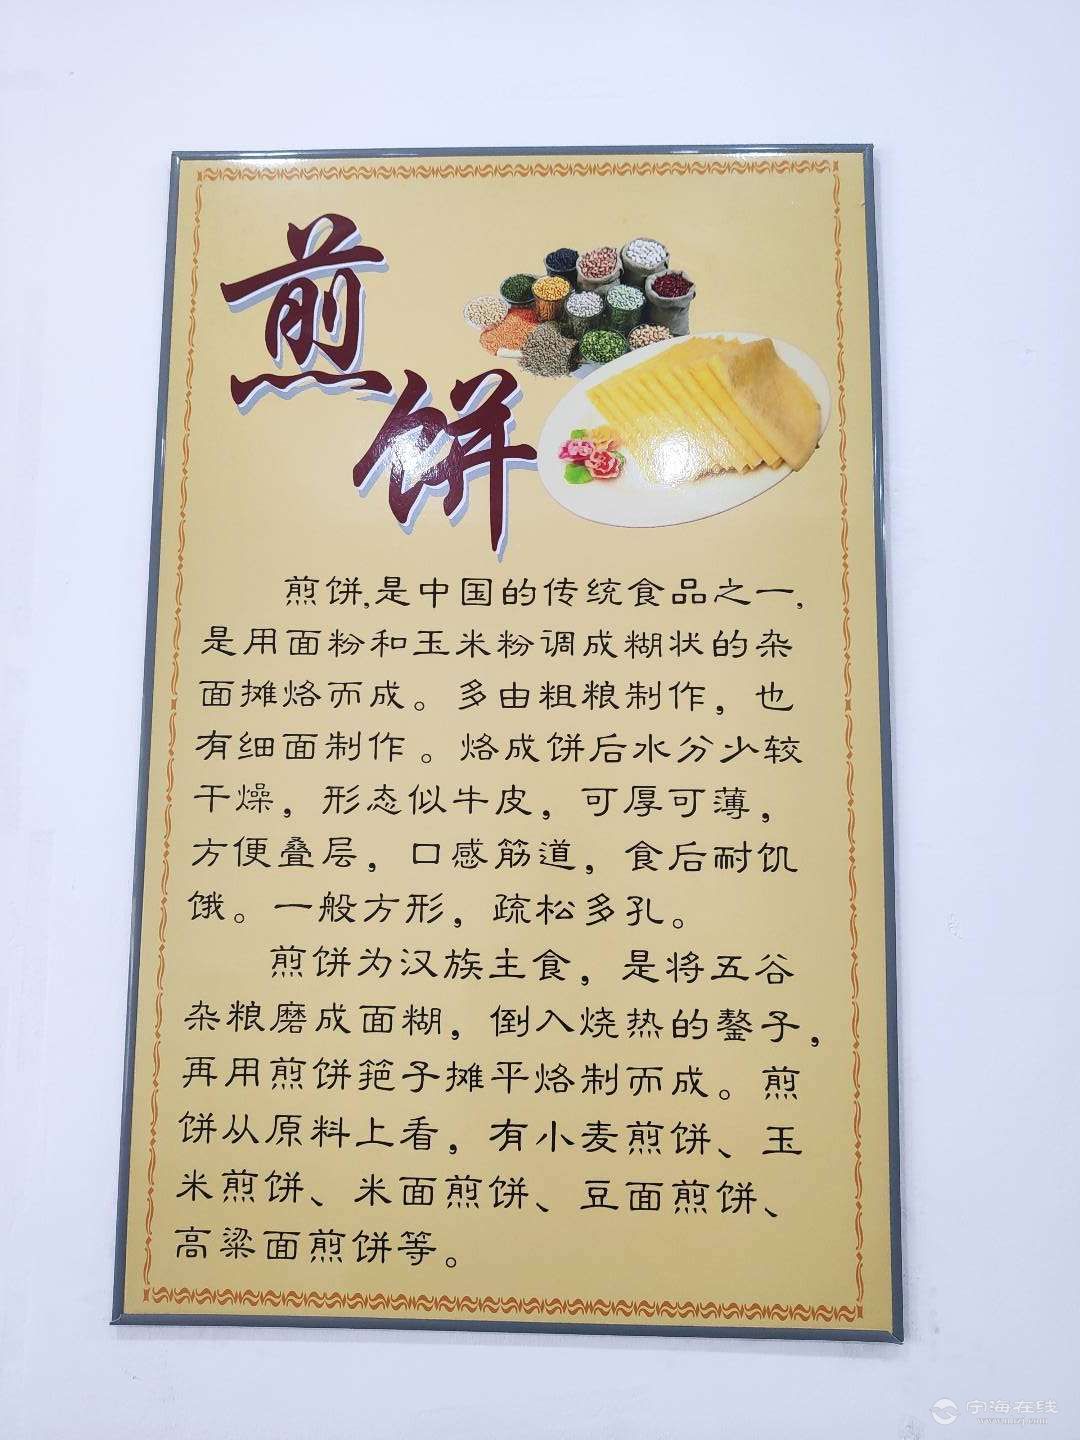 煎
饼
煎饼,是中国的传统食品之一,
是用面粉和玉米粉调成糊状的杂
面摊烙而成。多由粗粮制作，也
有细面制作。烙成饼后水分少较
干燥，形态似牛皮，可厚可薄，
方便叠层，口感筋道，食后耐饥
饿。一般方形，疏松多孔。
煎饼为汉族主食，是将五谷
杂粮磨成面糊，倒入烧热的鏊子，
再用煎饼筢子摊平烙制而成。煎
饼从原料上看，有小麦煎饼、玉
米煎饼、米面煎饼、豆面煎饼、
高粱面煎饼等。
宁海在线